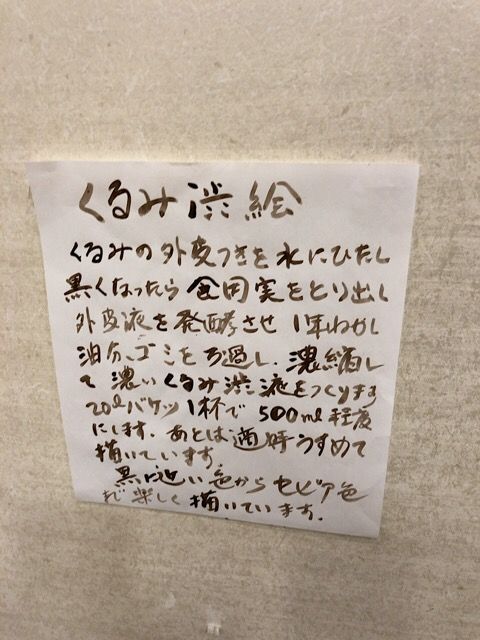 くるみ渋絵
くるみの外皮つきを水にひたし
黒くなったら食用実をとり出し
外皮液を発酵させ 1年ねかし
油分、ゴミをろ過し、濃縮し
て濃いくるみ渋液をつくります
20ℓバケツ1杯で 500ml 程度
にします。あとは適時うすめて
描いています。
黒に近い色からセピア色
まで楽しく描いています。